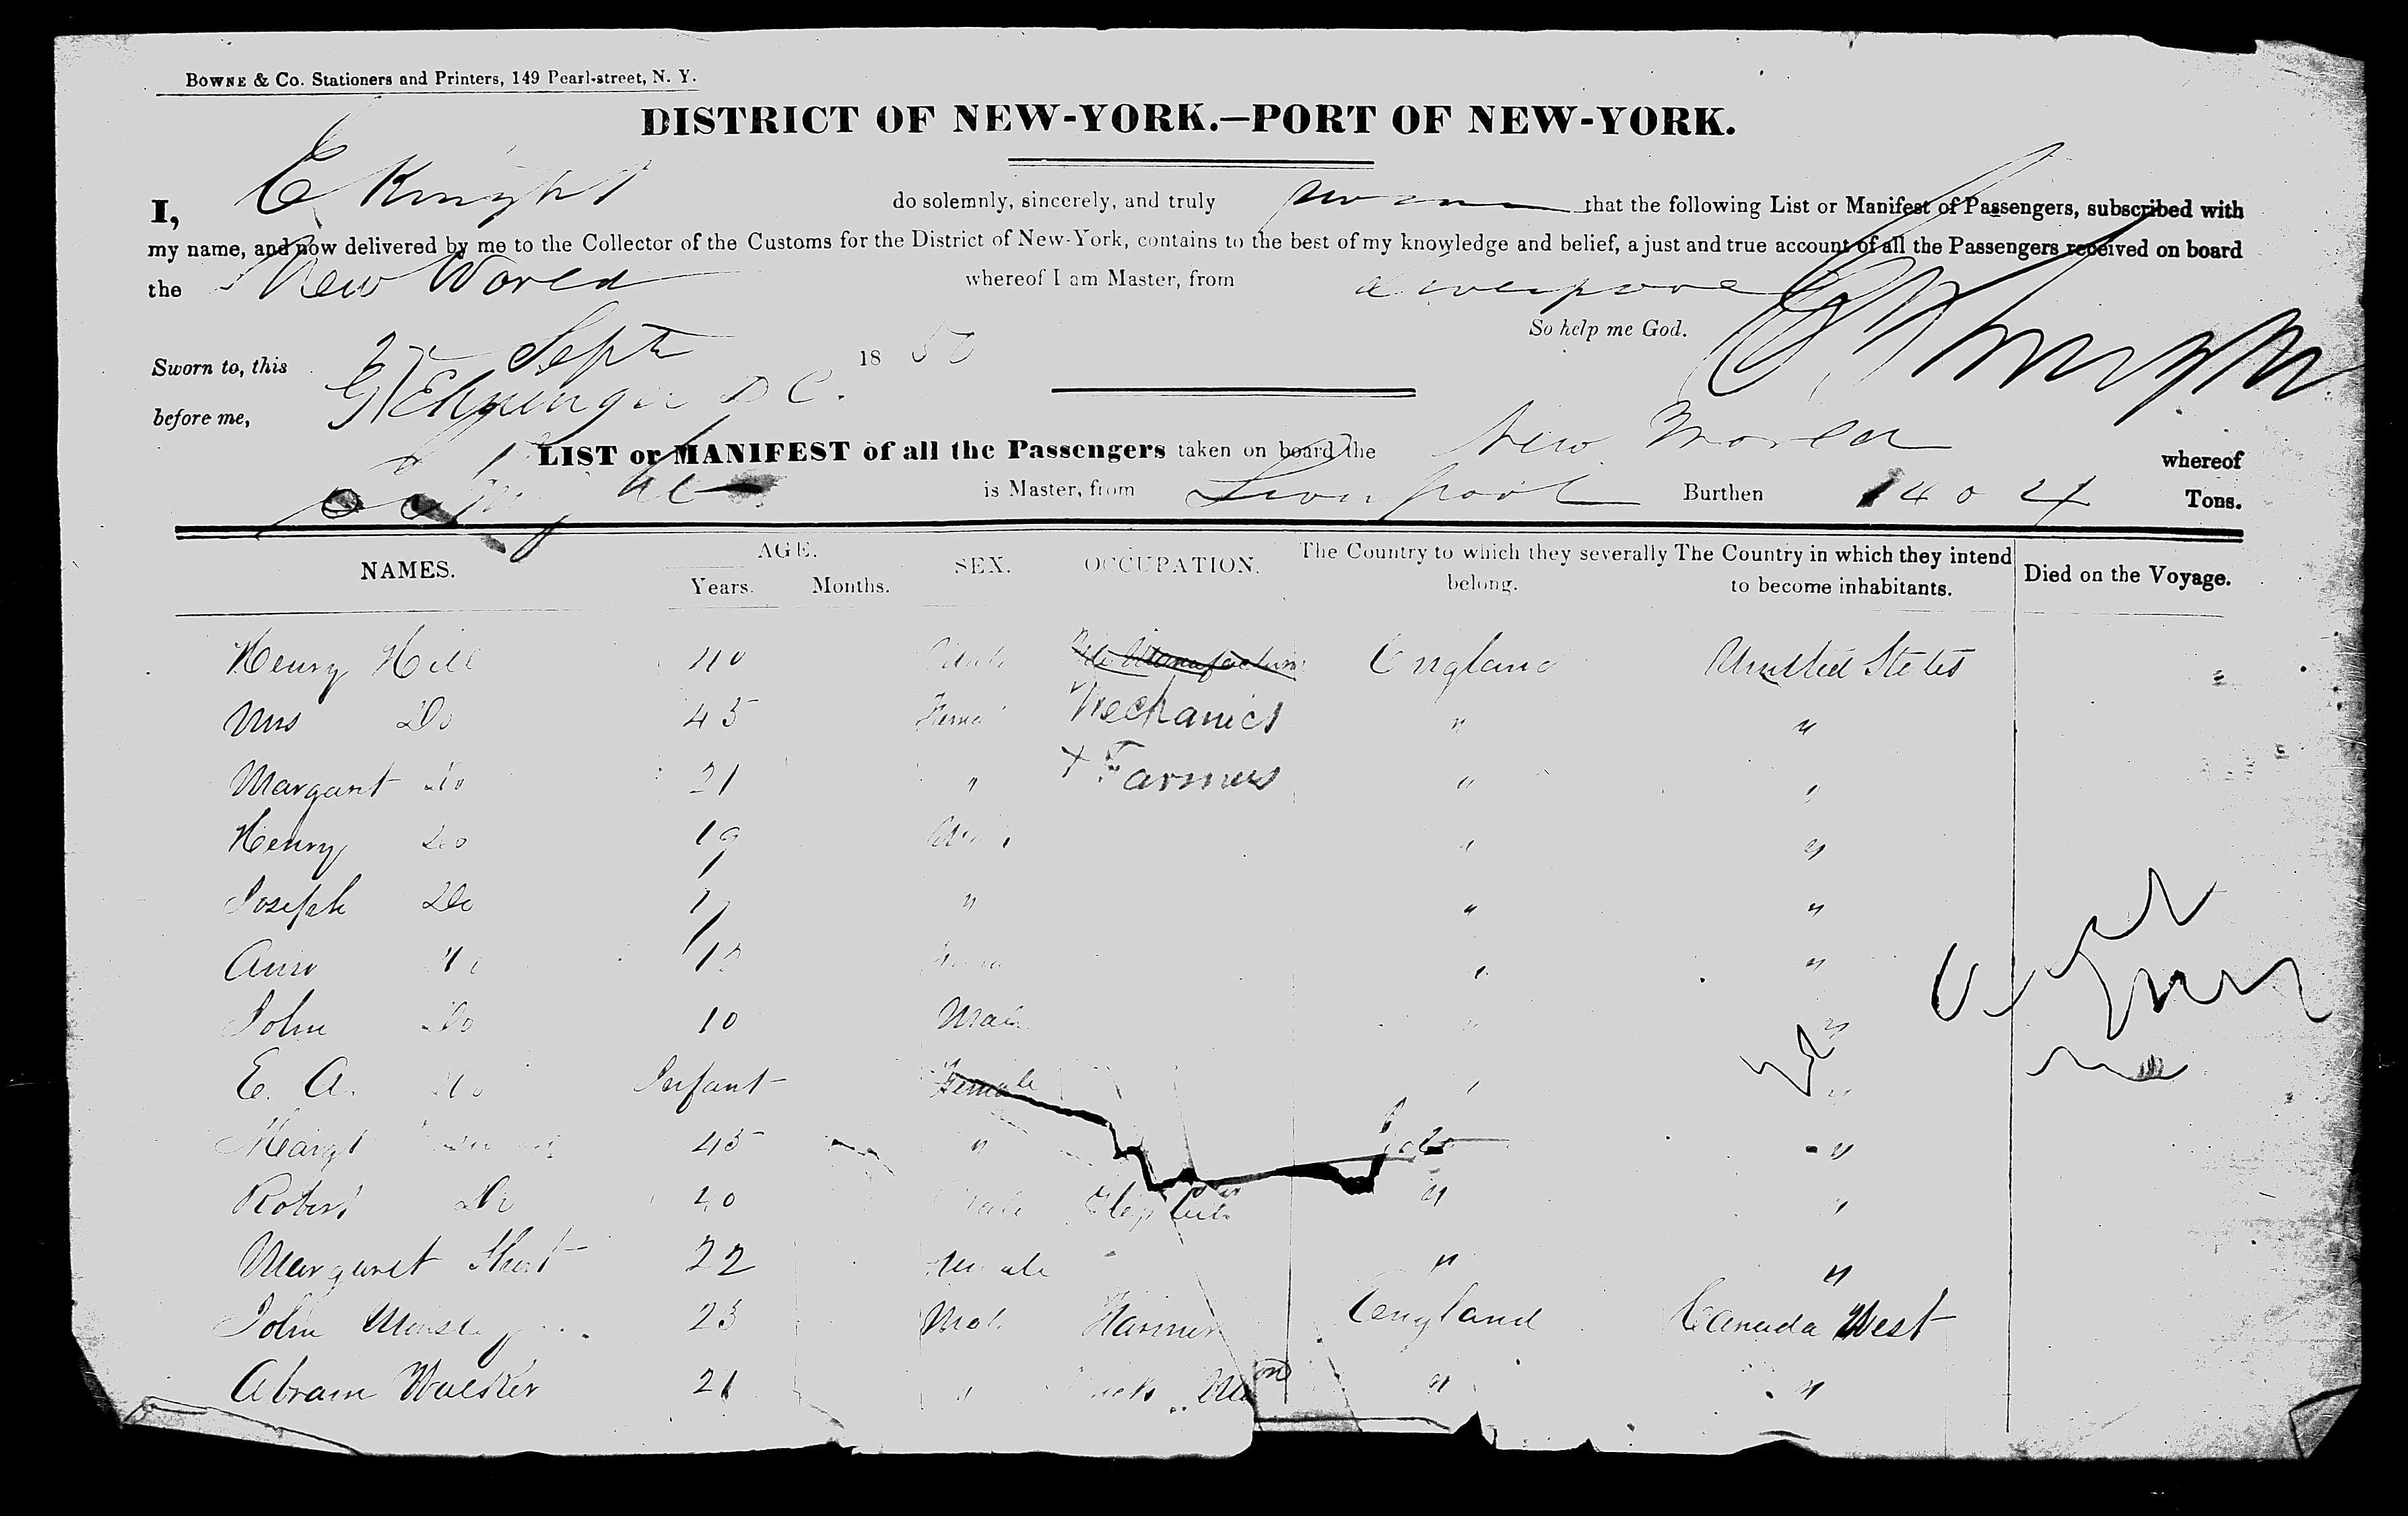 BOWNE & Co. Stationers and Printers, 149 Pearl-street, N. Y.
DISTRICT OF NEW-YORK.—PORT OF NEW-YORK.
I, E Knight do solemnly, sincerely, and truly swear that the following List or Manifest of Passengers, subscribed with
my name, and now delivered by me to the Collector of the Customs for the District of New-York, contains to the best of my knowledge and belief, a just and true account of all the Passengers received on board
the New World whereof I am Master, from Liverpool
So help me God. E Knight
Sworn to, this Sept 1850
before me, D C.
LIST or MANIFEST of all the Passengers taken on board the New World whereof
E Knight is Master, from Liverpool Burthen 1404 Tons.
NAMES. AGE. Years. Months. SEX. OCCUPATION. The Country to which they severally belong. The Country in which they intend to become inhabitants. Died on the Voyage.
Henry Hill 40 Male England United States
Mrs Do 45 Female Mechanics " "
Margaret Do 21 " + Farmers " "
Henry Do 19 Male " "
Joseph Do 17 " " "
Ann Do " "
John Do 10 Male " "
E. A. Do Infant Female " "
Margt 45 " "
Robert Do Male " "
Margaret 22 Female " "
John 23 Male Farmer England Canada West
Abram Walker 21 " " "